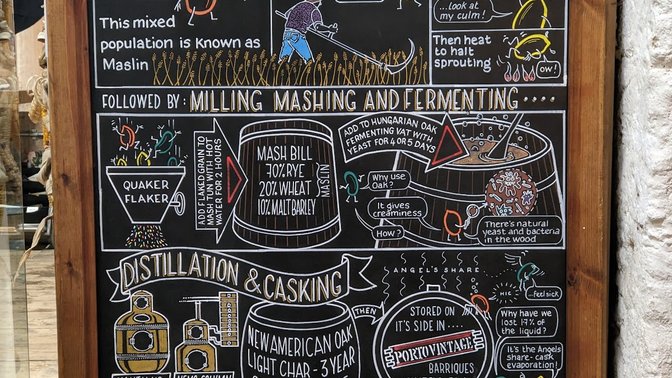 This mixed
population is known as
Maslin
...look at
my culm!
Then heat
to halt
sprouting
OW!
FOLLOWED BY: MILLING MASHING AND FERMENTING ....
QUAKER
FLAKER
ADD FLAKED GRAIN TO
MASH TUN WITH HOT
WATER FOR 2 HOURS
MASH BILL
70% RYE
20% WHEAT
10% MALT BARLEY
MASLIN
ADD TO HUNGARIAN OAK
FERMENTING VAT WITH
YEAST FOR 4 OR 5 DAYS
Why use
Oak?
It gives
creaminess
How?
There's natural
yeast and bacteria
in the wood
DISTILLATION & CASKING
NEW AMERICAN OAK
LIGHT CHAR - 3 YEAR
THEN
ANGEL'S SHARE
STORED ON
IT'S SIDE IN ....
PORTO VINTAGE
BARRIQUES
HIC
...feel sick
Why have we
lost 17% of
the liquid?
It's the Angels
share - cask
evaporation!